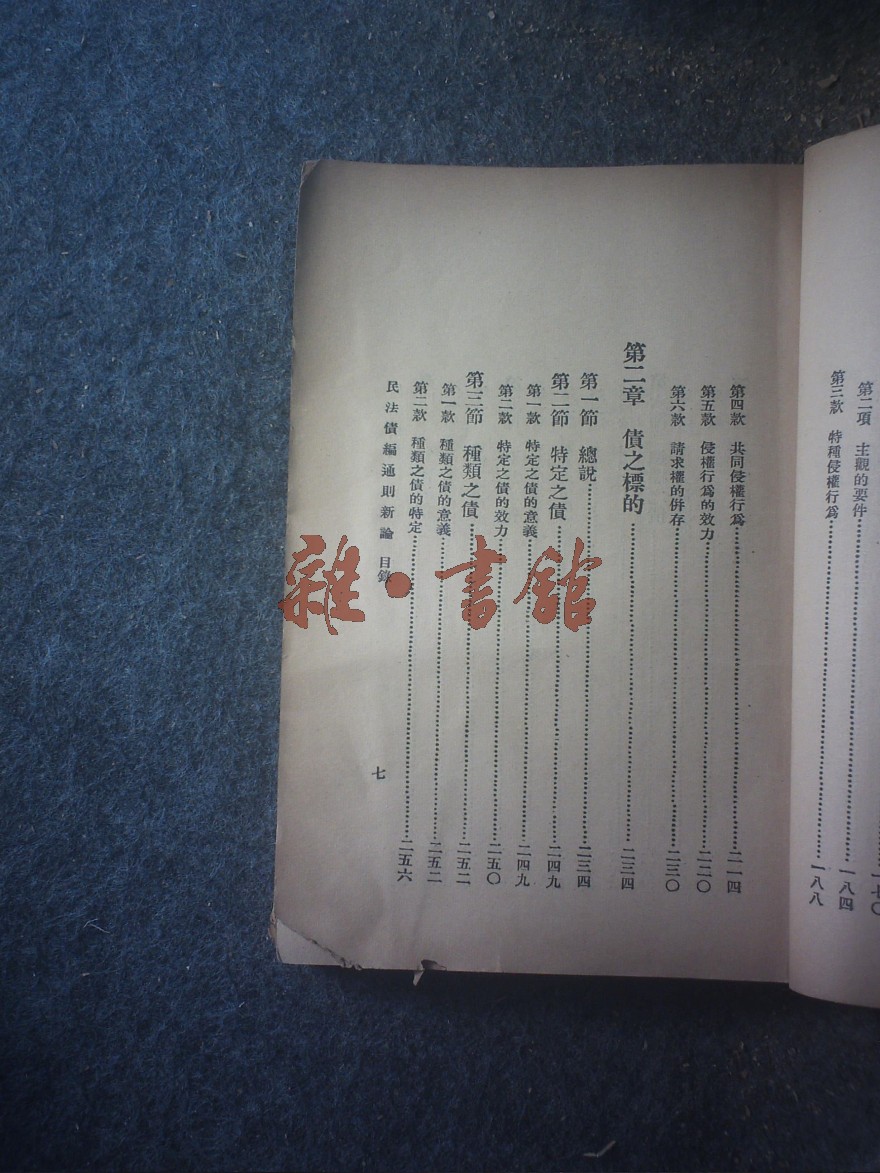 一七〇
第二項　主觀的要件……一八四
第三款　特種侵權行爲……一八八
第四款　共同侵權行爲……二一四
第五款　侵權行爲的效力……二二〇
第六款　請求權的併存……二三〇
第二章　債之標的……二三四
第一節　總說……二三四
第二節　特定之債……二四九
第一款　特定之債的意義……二四九
第二款　特定之債的效力……二五〇
第三節　種類之債……二五二
第一款　種類之債的意義……二五二
第二款　種類之債的特定……二五六
民法債編通則新論　目錄
七
雜·書館